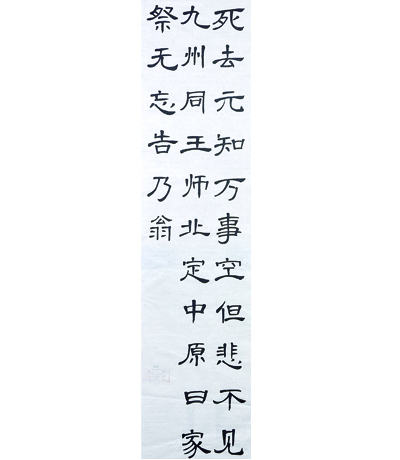 死去元知万事空但悲不见
九州同王师北定中原曰家
祭无忘告乃翁